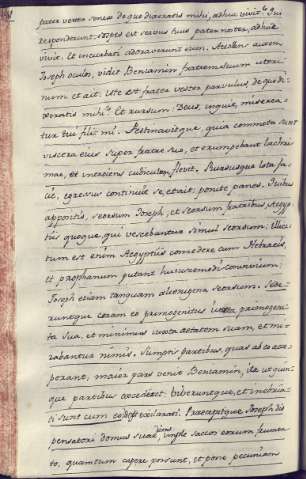 pater vester senex de quo dixeratis mihi, adhuc vivit? Qui
responderunt: sospes est servus tuus pater noster, adhuc
vivit. Et incurvati adoraverunt eum. Attollens autem
Joseph oculos, vidit Beniamin fratrem suum uteri-
num et ait. Iste est frater vester parvulus de quo di-
xeratis mihi? Et rursum Deus, inquit, miserea-
tur tui fili mi. Festinavitque, quia commota sunt
viscera eius super fratre suo, et erumpebant lachri-
mae, et introiens cubiculum flevit. Rursusque lota fa-
cie, egressus continuit se, et ait: ponite panes. Quibus
appositis, seorsum Joseph, et seorsum fratribus, Aegyp-
tiis quoque, qui vescebantur simul seorsum, illici-
tum est enim Aegyptiis comedere cum Hebraeis,
et prophanum putant huiuscemodi convivium;
Joseph etiam tanquam alienigena seorsim. Sede-
runtque coram eo primogenitus iuxta primogeni-
ta sua, et minimus iuxta aetatem suam, et mi-
rabantur nimis. Sumptis partibus, quas ab eo acce-
perant, maior pars venit Beniamin, ita ut quin-
que partibus excederet. Biberuntque, et inebria-
ti sunt cum eo. Praecepitque Joseph dis-
pensatori domus suae dicens, imple saccos eorum frumen-
to, quantum capere possunt, et pone pecuniam